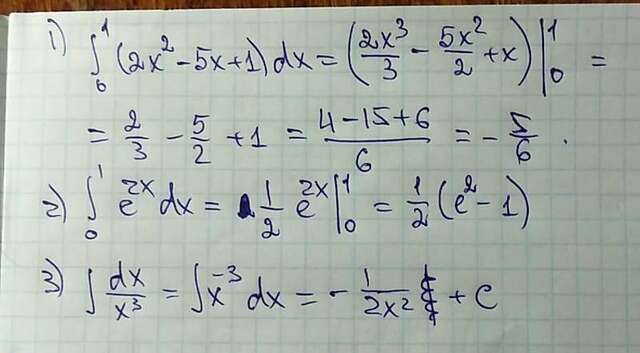 1) ∫₀¹ (2x² - 5x + 1) dx = (2x³/3 - 5x²/2 + x) |₀¹ =
= 2/3 - 5/2 + 1 = (4 - 15 + 6)/6 = - 5/6 .
2) ∫₀¹ e²ˣ dx = 1/2 e²ˣ |₀¹ = 1/2 (e² - 1)
3) ∫ dx/x³ = ∫ x⁻³ dx = - 1/(2x²) + C